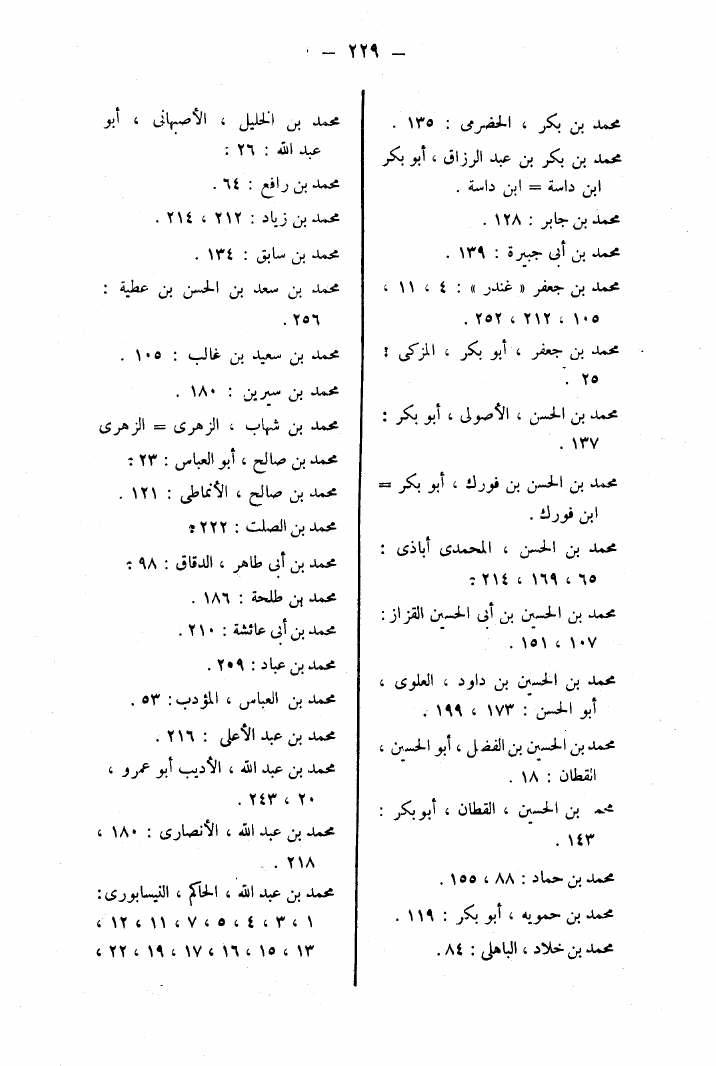 – ٢٢٩ –
محمد بن بكر ، الحضرمى : ١٣٥ .
محمد بن بكر بن عبد الرزاق ، أبو بكر
ابن داسة = ابن داسة .
محمد بن جابر : ١٢٨ .
محمد بن أبى جبيرة : ١٣٩ .
محمد بن جعفر « غندر » : ٤ ، ١١ ،
١٠٥ ، ٢١٢ ، ٢٥٢ .
محمد بن جعفر ، أبو بكر ، المزكى :
٢٥ .
محمد بن الحسن ، الأصولى ، أبو بكر :
١٣٧ .
محمد بن الحسن بن فورك ، أبو بكر =
ابن فورك .
محمد بن الحسن ، المحمدى أباذى :
٦٥ ، ١٦٩ ، ٢١٤ :
محمد بن الحسين بن أبى الحسين القزاز :
١٠٧ ، ١٥١ .
محمد بن الحسين بن داود ، العلوى ،
أبو الحسن : ١٧٣ ، ١٩٩ .
محمد بن الحسين بن الفضل ، أبو الحسين ،
القطان : ١٨ .
محمد بن الحسين ، القطان ، أبو بكر :
١٤٣ .
محمد بن حماد : ٨٨ ، ١٥٥ .
محمد بن حمويه ، أبو بكر : ١١٩ .
محمد بن خلاد ، الباهلى : ٨٤ .
محمد بن الخليل ، الأصبهانى ، أبو
عبد الله : ٢٦ :
محمد بن رافع : ٦٤ .
محمد بن زياد : ٢١٢ ، ٢١٤ .
محمد بن سابق : ١٣٤ .
محمد بن سعد بن الحسن بن عطية :
٢٥٦ .
محمد بن سعيد بن غالب : ١٠٥ .
محمد بن سيرين : ١٨٠ .
محمد بن شهاب ، الزهرى = الزهرى
محمد بن صالح ، أبو العباس : ٢٣ :
محمد بن صالح ، الأنماطى : ١٢١ .
محمد بن الصلت : ٢٢٢ :
محمد بن أبى طاهر ، الدقاق : ٩٨ :
محمد بن طلحة : ١٨٦ .
محمد بن أبى عائشة : ٢١٠ .
محمد بن عباد : ٢٠٩ .
محمد بن العباس ، المؤدب : ٥٣ .
محمد بن عبد الأعلى : ٢١٦ .
محمد بن عبد الله ، الأديب أبو عمرو ،
٢٠ ، ٢٤٣ .
محمد بن عبد الله ، الأنصارى : ١٨٠ ،
٢١٨ .
محمد بن عبد الله ، الحاكم ، النيسابورى :
١ ، ٣ ، ٤ ، ٥ ، ٧ ، ١١ ، ١٢ ،
١٣ ، ١٥ ، ١٦ ، ١٧ ، ١٩ ، ٢٢ ،